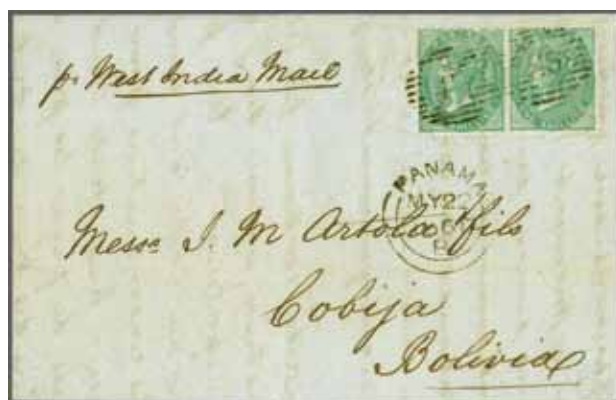 pr West India Mail
PANAMA
MY 2
Messrs J. M Artola fils
Cobija
Bolivia